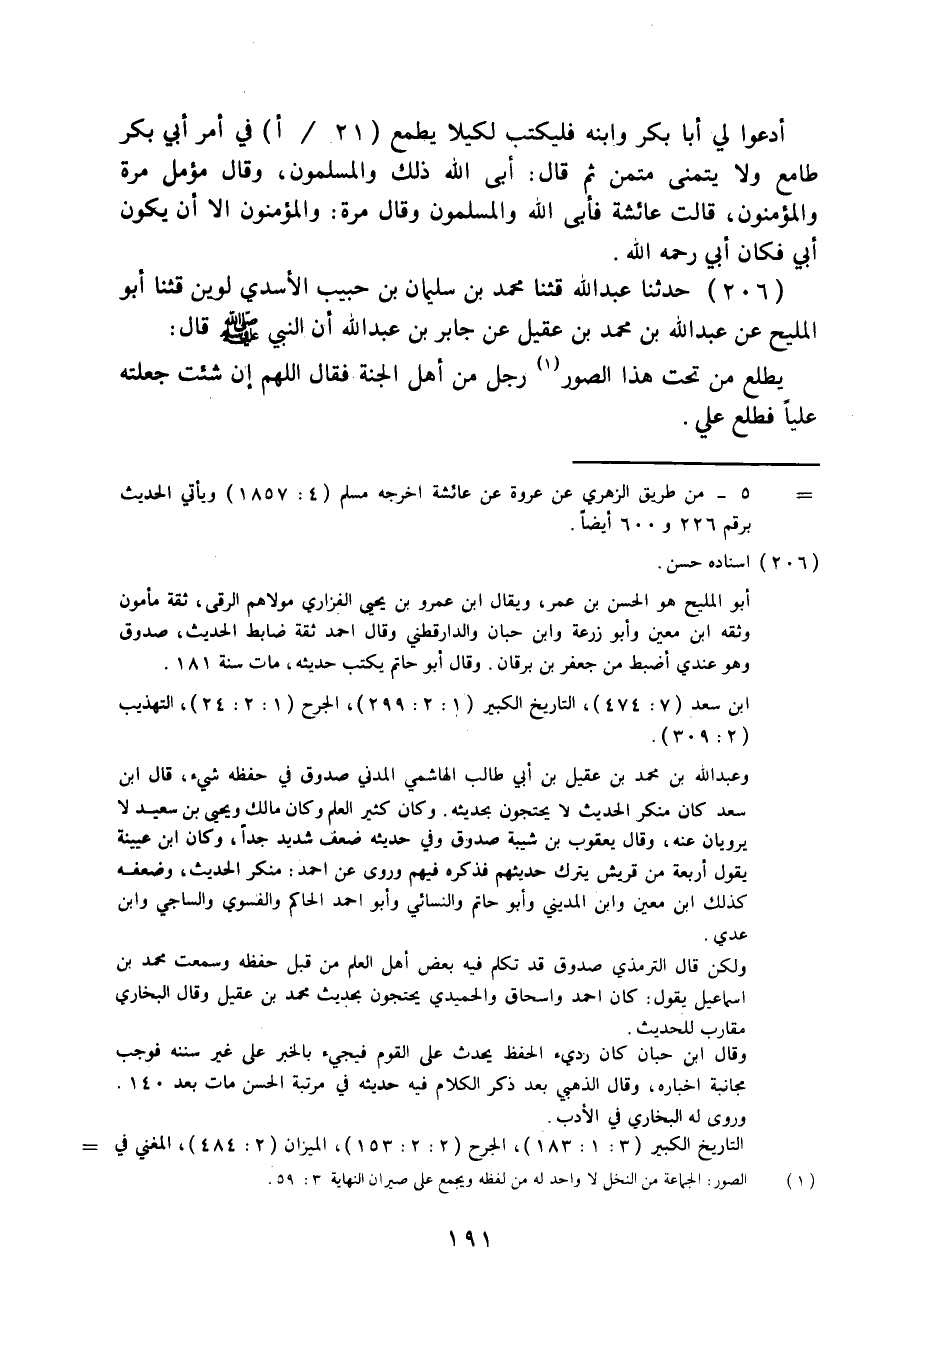 أدعوا لي أبا بكر وابنه فليكتب لكيلا يطمع (٢١ / أ) في أمر أبي بكر
طامع ولا يتمنى متمن ثم قال: أبى الله ذلك والمسلمون، وقال مؤمل مرة
والمؤمنون، قالت عائشة فأبى الله والمسلمون وقال مرة: والمؤمنون الا أن يكون
أبي فكان أبي رحمه الله .
(٢٠٦) حدثنا عبدالله قثنا محمد بن سليمان بن حبيب الأسدي لوين قثنا أبو
المليح عن عبدالله بن محمد بن عقيل عن جابر بن عبدالله أن النبي ﷺ قال:
يطلع من تحت هذا الصور(١) رجل من أهل الجنة فقال اللهم إن شئت جعلته
علياً فطلع علي .
= ٥ - من طريق الزهري عن عروة عن عائشة اخرجه مسلم (٤: ١٨٥٧) ويأتي الحديث
برقم ٢٢٦ و ٦٠٠ أيضاً .
(٢٠٦) اسناده حسن .
أبو المليح هو الحسن بن عمر، ويقال ابن عمرو بن يحيى الفزاري مولاهم الرقى، ثقة مأمون
وثقه ابن معين وأبو زرعة وابن حبان والدارقطني وقال احمد ثقة ضابط الحديث، صدوق
وهو عندي أضبط من جعفر بن برقان. وقال أبو حاتم يكتب حديثه، مات سنة ١٨١ .
ابن سعد (٧: ٤٧٤)، التاريخ الكبير (١: ٢: ٢٩٩)، الجرح (١: ٢: ٢٤)، التهذيب
(٢: ٣٠٩).
وعبدالله بن محمد بن عقيل بن أبي طالب الهاشمي المدني صدوق في حفظه شيء، قال ابن
سعد كان منكر الحديث لا يحتجون بحديثه. وكان كثير العلم وكان مالك ويحيى بن سعيد لا
يرويان عنه، وقال يعقوب بن شيبة صدوق وفي حديثه ضعف شديد جداً، وكان ابن عيينة
يقول أربعة من قريش يترك حديثهم فذكره فيهم وروى عن احمد: منكر الحديث، وضعفه
كذلك ابن معين وابن المديني وأبو حاتم والنسائي وأبو احمد الحاكم والفسوي والساجي وابن
عدي .
ولكن قال الترمذي صدوق قد تكلم فيه بعض أهل العلم من قبل حفظه وسمعت محمد بن
اسماعيل يقول: كان احمد واسحاق والحميدي يحتجون بحديث محمد بن عقيل وقال البخاري
مقارب للحديث .
وقال ابن حبان كان رديء الحفظ يحدث على القوم فيجيء بالخبر على غير سننه فوجب
مجانبة اخباره، وقال الذهبي بعد ذكر الكلام فيه حديثه في مرتبة الحسن مات بعد ١٤٠ .
وروى له البخاري في الأدب.
التاريخ الكبير (٣: ١: ١٨٣)، الجرح (٢: ٢: ١٥٣)، الميزان (٢: ٤٨٤)، المغني في =
(١) الصور: الجماعة من النخل لا واحد له من لفظه ويجمع على صيران النهاية ٣: ٥٩ .
١٩١